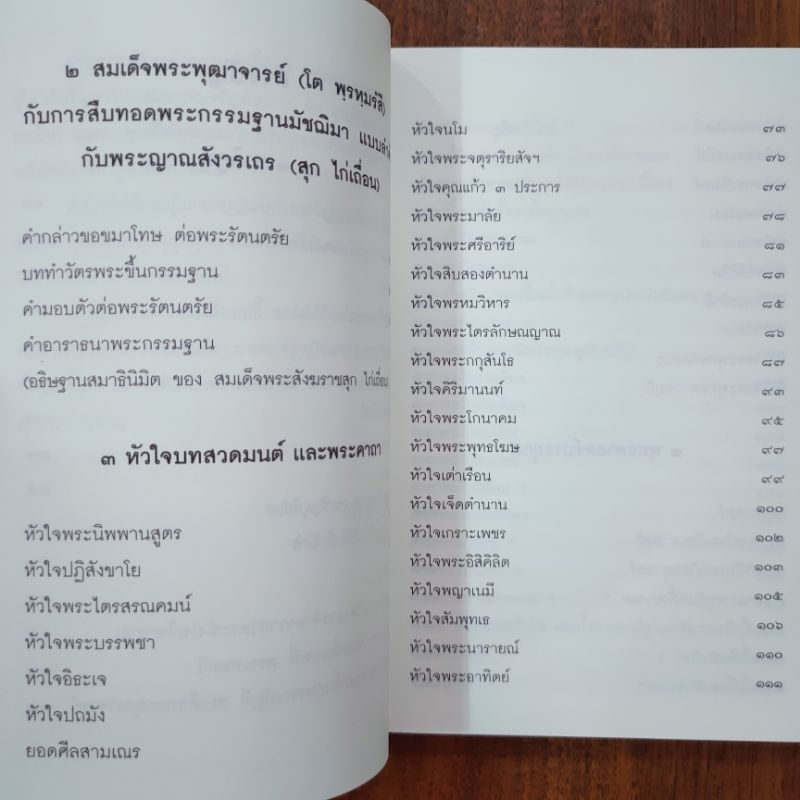 ๒ สมเด็จพระพุฒาจารย์ (โต พฺรหฺมรํสี)
กับการสืบทอดพระกรรมฐานมัชฌิมา แบบลำ
กับพระญาณสังวรเถร (สุก ไก่เถื่อน)
คำกล่าวขอขมาโทษ ต่อพระรัตนตรัย
บททำวัตรพระขึ้นกรรมฐาน
คำมอบตัวต่อพระรัตนตรัย
คำอาราธนาพระกรรมฐาน
(อธิษฐานสมาธินิมิต ของ สมเด็จพระสังฆราชสุก ไก่เถื่อน
๓ หัวใจบทสวดมนต์ และพระคาถา
หัวใจพระนิพพานสูตร
หัวใจปฏิสังขาโย
หัวใจพระไตรสรณคมน์
หัวใจพระบรรพชา
หัวใจอิธะเจ
หัวใจปถมัง
ยอดศีลสามเณร
หัวใจนโม ๗๓
หัวใจพระจตุราริยสัจฯ ๗๖
หัวใจคุณแก้ว ๓ ประการ ๗๗
หัวใจพระมาลัย ๗๘
หัวใจพระศรีอาริย์ ๘๑
หัวใจสิบสองตำนาน ๘๓
หัวใจพรหมวิหาร ๘๕
หัวใจพระไตรลักษณญาณ ๘๖
หัวใจพระกกุสันโธ ๘๗
หัวใจคิริมานนท์ ๙๓
หัวใจพระโกนาคม ๙๕
หัวใจพระพุทธโฆษ ๙๗
หัวใจเต่าเรือน ๙๙
หัวใจเจ็ดตำนาน ๑๐๐
หัวใจเกราะเพชร ๑๐๒
หัวใจพระอิสิคิลิต ๑๐๓
หัวใจพญาเนมี ๑๐๕
หัวใจสัมพุทเธ ๑๐๖
หัวใจพระนารายณ์ ๑๑๐
หัวใจพระอาทิตย์ ๑๑๑